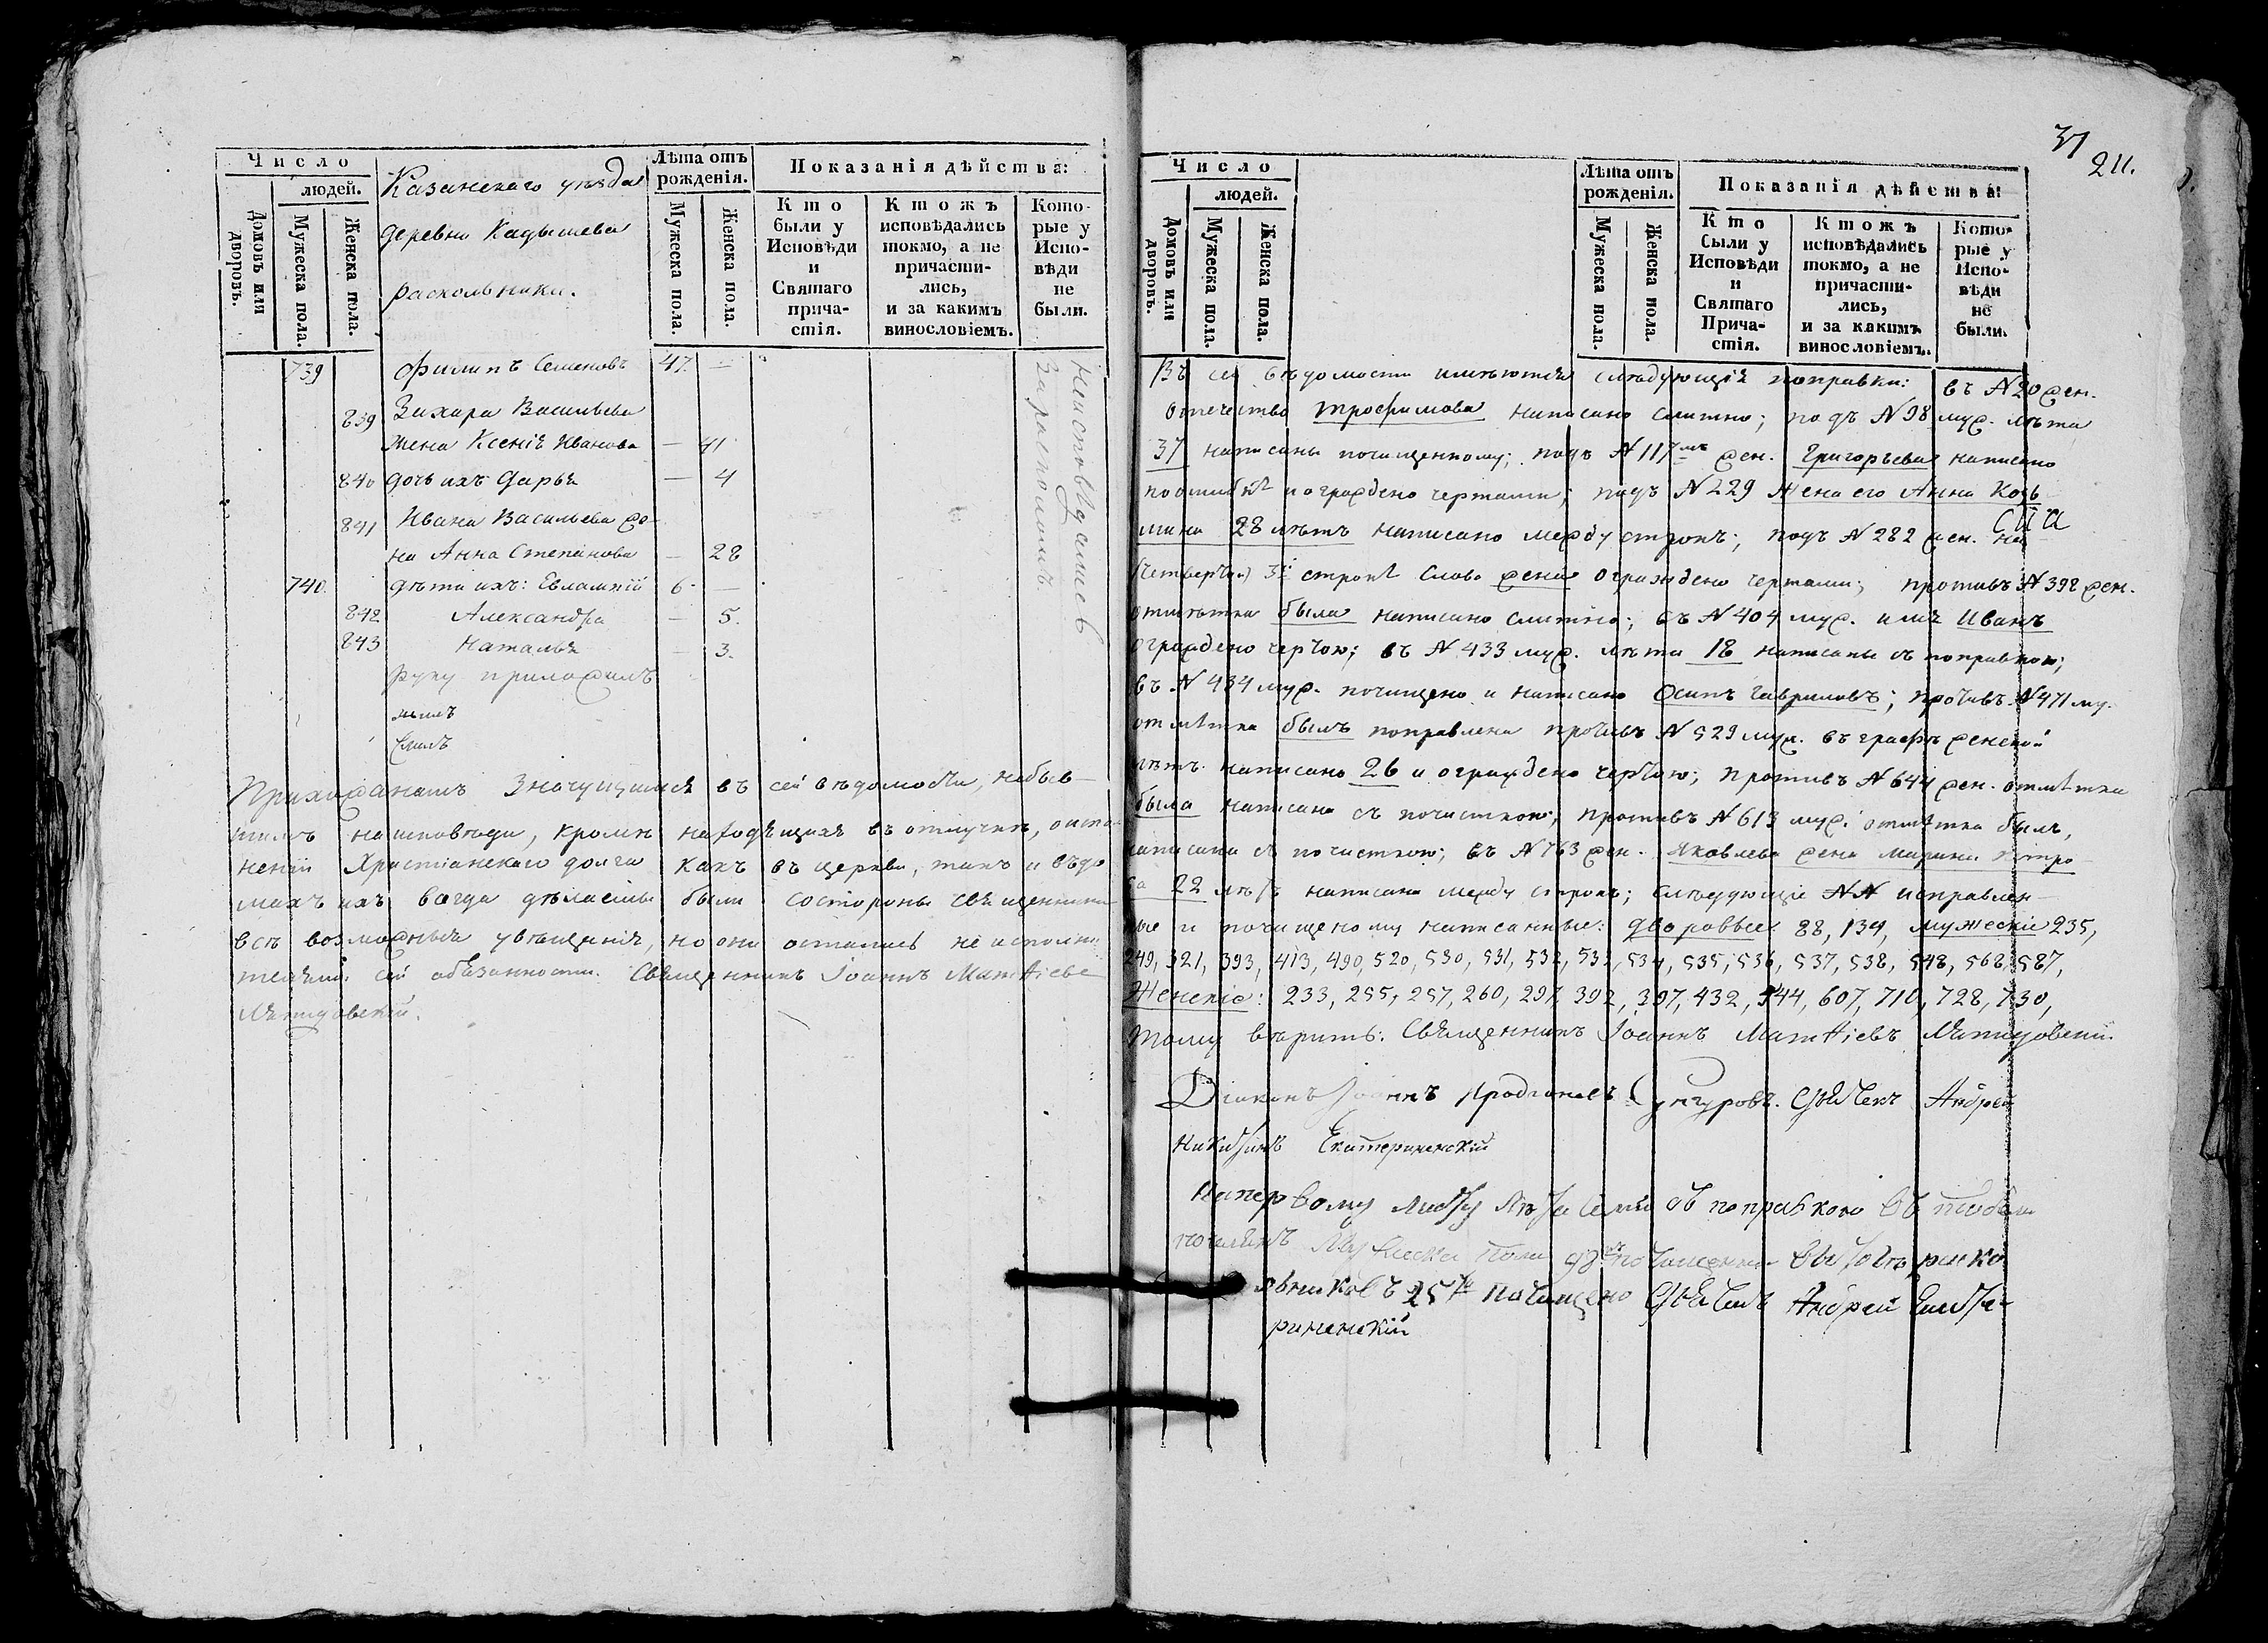 Число
людей.
Домовъ или дворовъ.
Мужеска пола.
Женска пола.
Казанскаго уѣзда
деревни Кадышева
раскольники.
Лѣта отъ рожденія.
Мужеска пола.
Женска пола.
Показанія дѣйства:
Кто были у Исповѣди и Святаго причастія.
Ктожъ исповѣдались токмо, а не причастились, и за какимъ винословіемъ.
Которые у Исповѣди не были.
739 Филипъ Семеновъ 47. —
Захара Васильева
839 жена Ксенія Иванова — 41
840 дочь ихъ Дарья — 4
841 Ивана Васильева же-
на Анна Степанова — 28
740. дѣти ихъ: Евлампій 6 —
842 Александра — 5.
843 Наталья — 3.
Неисповѣдались
за расколомъ
руку приложилъ
Прихожанамъ значущимся въ сей вѣдомости, небыв-
шимъ на исповѣди, кромѣ находящихся въ отлучкѣ, о испол
неніи Христіанскаго долга какъ въ церкви, такъ и въ до
махъ ихъ всегда дѣласмы были со стороны священника
всѣ возможныя увѣщанія, но они остались не исполни
телями сей обязанности. Священникъ Іоаннъ Матѳіевъ
37
211.
Число
людей.
Домовъ или дворовъ.
Мужеска пола.
Женска пола.
Лѣта отъ рожденія.
Мужеска пола.
Женска пола.
Показанія дѣйства:
Кто были у Исповѣди и Святаго Причастія.
Ктожъ исповѣдались токмо, а не причастились, и за какимъ винословіемъ.
Которые у Исповѣди не были.
Въ сей вѣдомости имѣются слѣдующія поправки: въ №20 жен.
отечество Трофимова написано слитно; подъ №98 муж. лѣта
37 написаны почищенному; подъ №117мъ жен. Григорьева написано
по ошибкѣ и ограждено чертами; подъ №229 жена его Анна Козь
мина 28 лѣтъ написано между строкъ; подъ №282 жен. на
сій
(четверт.) 3й строкѣ слово жена ограждено чертами; противъ №398 жен.
отмѣтка была написано слитно; въ №404 муж. имя Иванъ
ограждено чертою; въ №433 муж. лѣта 18 написаны съ поправкою;
въ №434 муж. почищено и написано Осипъ Гавриловъ; противъ №471 му.
отмѣтка былъ поправлена противъ №529 муж. въ графѣ женской
лѣтъ написано 26 и ограждено чертою; противъ №644 жен. отмѣтка
была написана съ почисткою; противъ №613 муж. отмѣтка былъ,
написана съ почисткою; въ №763 жен. Яковлева жена Марина Петро-
ва 22 лѣтъ написана между строкъ; слѣдующіе №№ исправлен-
ные и почищеному написанные: дворовые 88, 134, мужескіе 235,
249, 321, 393, 413, 490, 520, 530, 531, 532, 533, 534, 535, 536, 537, 538, 548, 568, 587,
Женскіе: 233, 255, 257, 260, 297, 392, 397, 432, 544, 607, 710, 728, 730,
тому вѣрить: Священникъ Іоаннъ Матѳіевъ
Діаконъ Іоаннъ Сунгуровъ. Дьячекъ Андрей
Никитинъ Екатерининскій
На первому листу лѣта съ поправкою въ
мужеска пола 98 почищенно
25 почищено Дьячекъ Андрей Екате-
рининскій